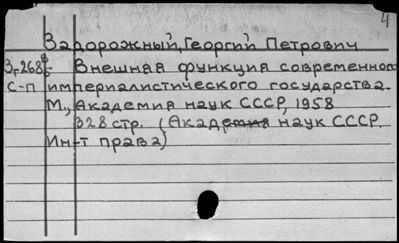 4
Задорожный, Георгий Петрович
Внешняя функция современного
С-п империалистического государства.
М., Академия наук СССР, 1958
328 стр. (Академия наук СССР.
Ин-т права)